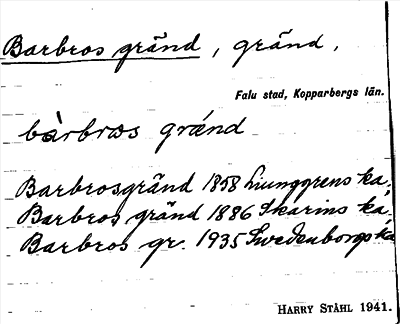 Barbros gränd, gränd,
Falu stad, Kopparbergs län.
bàrbros grénd
Barbrosgränd 1858 Ljunggrens ka.;
Barbros gränd 1886 Skarins ka.
Barbros gr. 1935 Swedenborgs ka
HARRY STÅHL 1941.